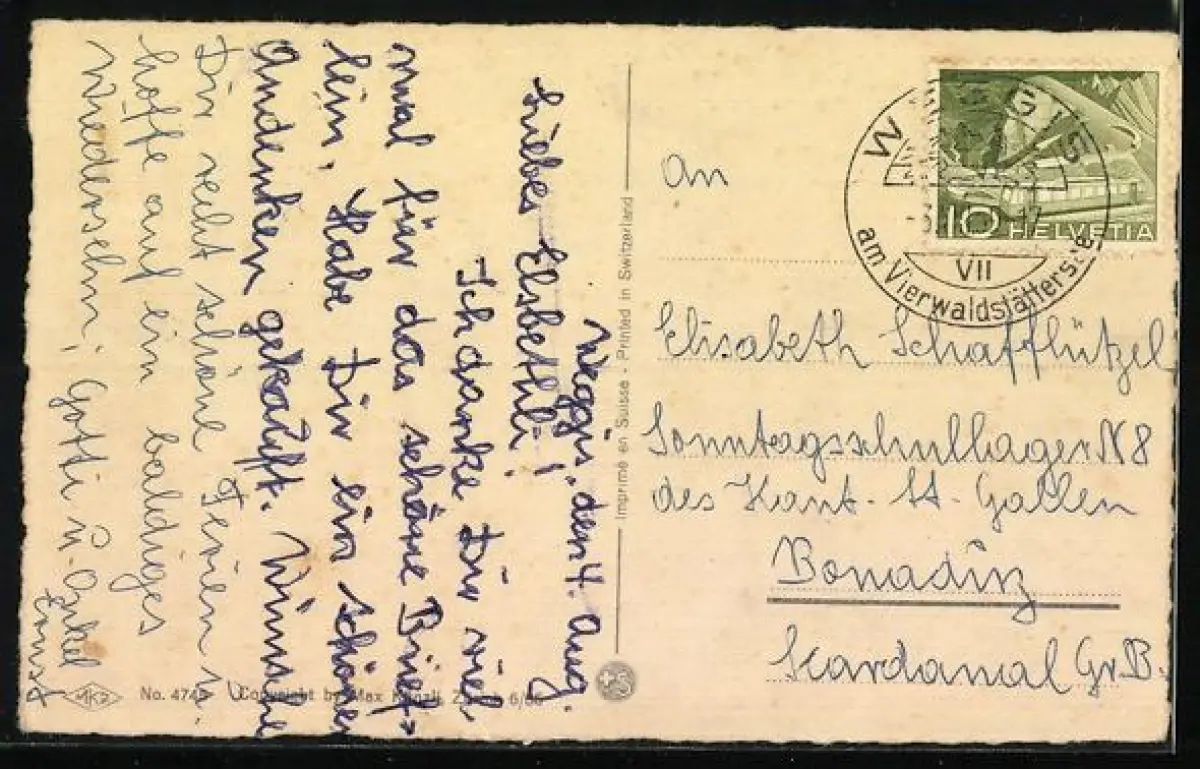 Weggis, den 4. Aug.
Liebes Elsbethli!
Ich danke Dir viel-
mal für das schöne Brief-
lein. Habe Dir ein schönes
Andenken gekauft. Wünsche
Dir recht schöne Ferien u.
hoffe auf ein baldiges
Wiedersehn! Gotti u. Onkel
Ernst
Imprimé en Suisse - Printed in Switzerland
WEGGIS
VII
am Vierwaldstättersee
10 HELVETIA
An
Elisabeth Schafflützel
Sonntagsschullager N8
des Kant. St. Gallen
Bonaduz
Scardanal Gr.B.
MK2
No. 474 Copyright by Max Künzli, Zürich 6/